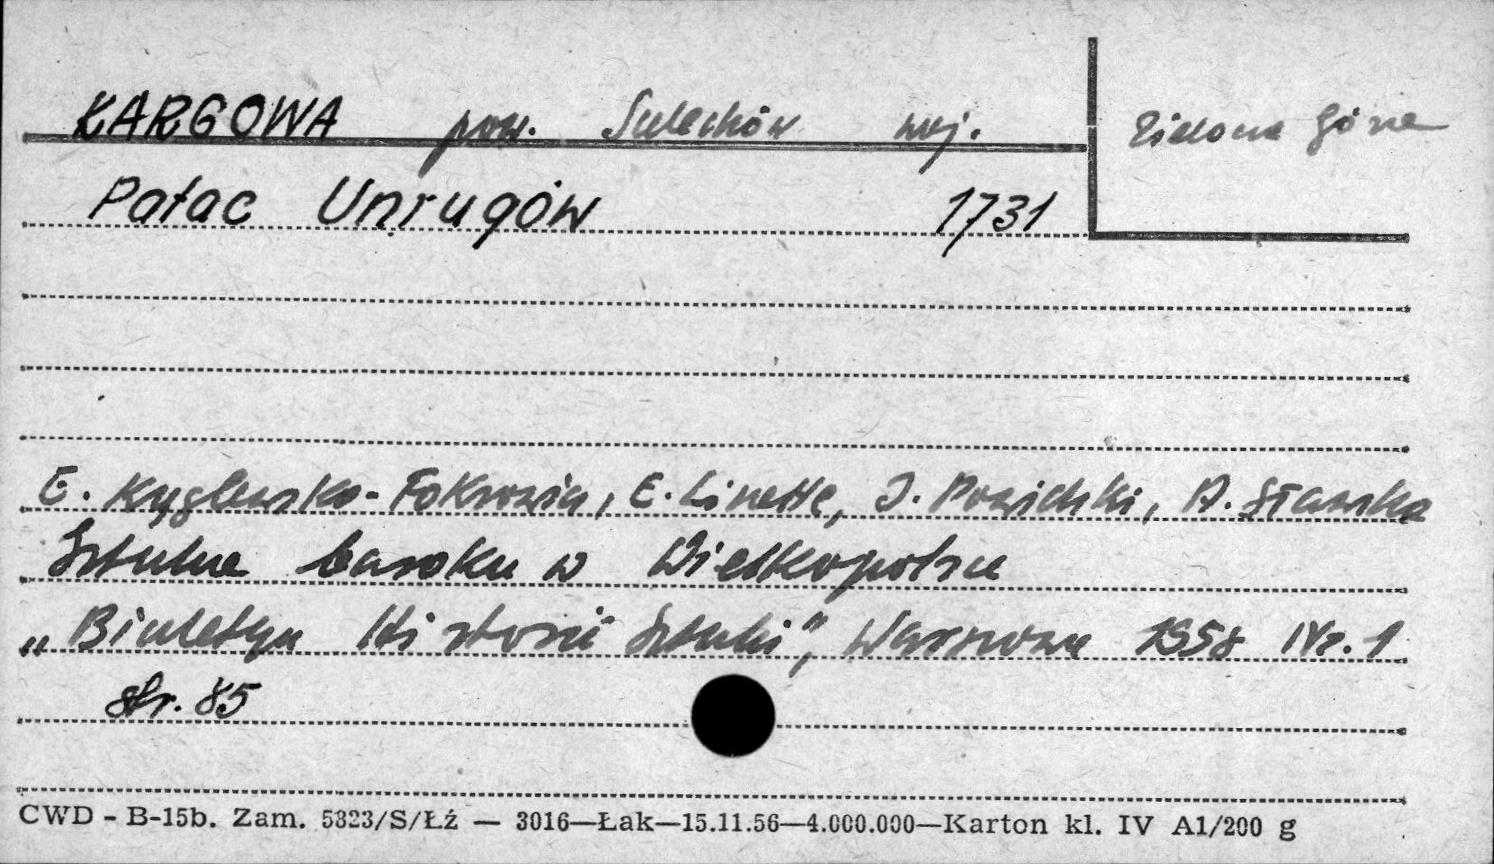 KARGOWA pow. Sulechów woj. Zielona Góra
Pałac Unrugów 1731
E. Linette, J. Powidzki, A. Sławska
Sztuka baroku w Wielkopolsce
„Biuletyn Historii Sztuki", Warszawa 1958 Nr. 1
str. 85
CWD - B-15b. Zam. 5323/S/Łź — 3016—Łak—15.11.56—4.000.000—Karton kl. IV A1/200 g